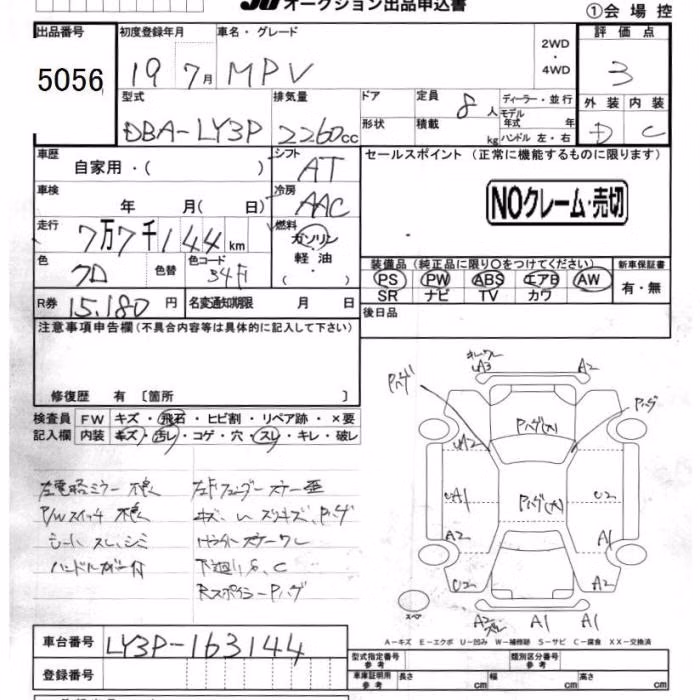 オークション出品申込書
①会場控
出品番号 初度登録年月 車名・グレード 2WD・4WD 評価点
5056 19 7月 MPV 3
型式 排気量 ドア 定員 8人 ディーラー・並行 外装 内装
DBA-LY3P 2260cc 形状 積載 kg モデル年式 年 ハンドル 左・右 D C
車歴 自家用・( ) シフト AT セールスポイント (正常に機能するものに限ります)
車検 年 月( 日) 冷房 AAC NOクレーム・売切
走行 7万7千144km 燃料 ガソリン・軽油・( )
色 クロ 色替 色コード 34F 装備品 (純正品に限り○をつけてください) 新車保証書
PS PW ABS エアB AW 有・無
SR ナビ TV カワ
R券 15,180円 名変通知期限 月 日 後日品
注意事項申告欄(不具合内容等は具体的に記入して下さい)
修復歴 有 〔箇所 〕
検査員 FW キズ・飛石・ヒビ割・リペア跡・×要
記入欄 内装 キズ・汚レ・コゲ・穴・スレ・キレ・破レ
P/Wスイッチ 不良
ハンドルカバー付
下廻りS、C
RスポイラーPハゲ
A3 A2
Pハゲ Pハゲ
Pハゲ(大)
A2
Pハゲ(大)
A1 U2
A2 A1
U2 A1
スペア A2 A1
A-キズ E-エクボ U-凹み W-補修跡 S-サビ C-腐食 XX-交換済
車台番号 LY3P-163144
型式指定番号 参考 類別区分番号 参考
登録番号
車庫証明用 参考 長さ cm 幅 cm 高さ cm